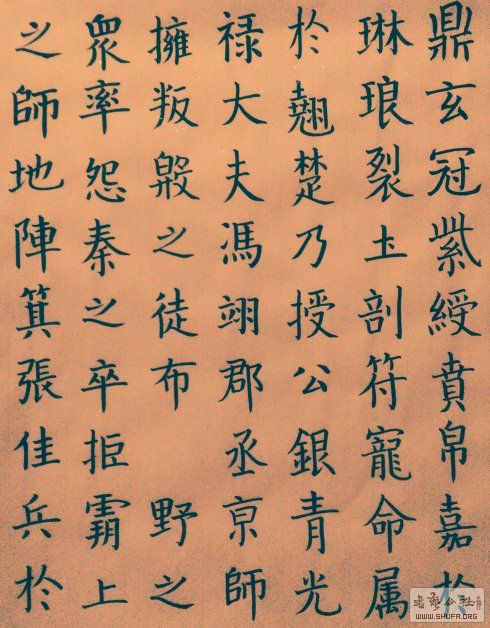 鼎玄冠紫綬賁帛嘉於
琳琅裂土剖符寵命属
於翹楚乃授公銀青光
禄大夫馮翊郡丞京師
擁叛殷之徒布 野之
眾率怨秦之卒拒 霸上
之師地陣箕張佳兵於
書法公社
WWW.SHUFA.ORG